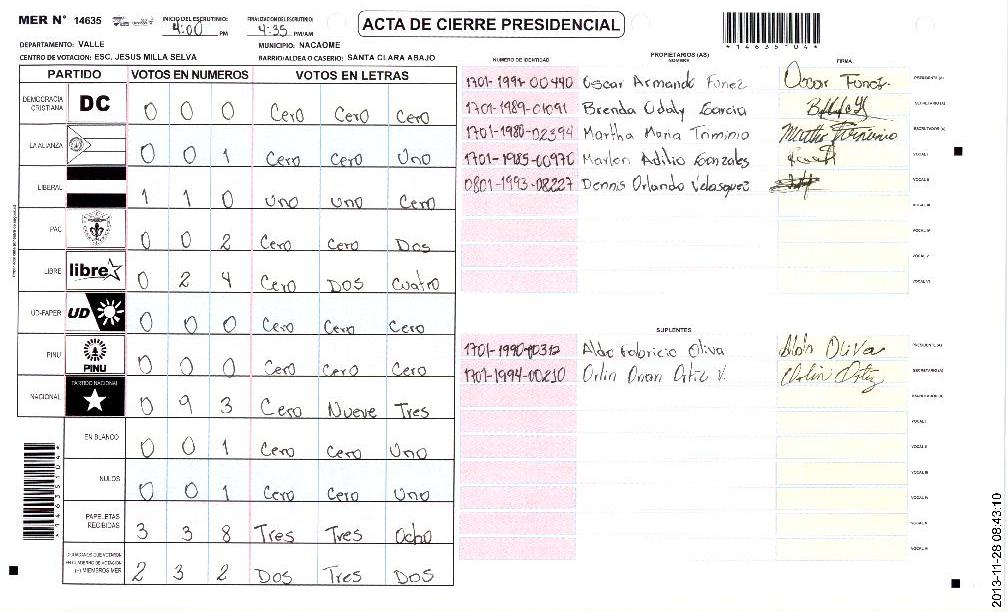 MER N° 14635
INICIO DEL ESCRUTINIO: 4:00 PM
FINALIZACION DEL ESCRUTINIO: 4:35 PM/AM
ACTA DE CIERRE PRESIDENCIAL
*14635104*
DEPARTAMENTO: VALLE
MUNICIPIO: NACAOME
CENTRO DE VOTACION: ESC. JESUS MILLA SELVA
BARRIO/ALDEA O CASERIO: SANTA CLARA ABAJO
PARTIDO VOTOS EN NUMEROS VOTOS EN LETRAS
DEMOCRACIA CRISTIANA DC 0 0 0 Cero Cero Cero
LA ALIANZA 0 0 1 Cero Cero Uno
LIBERAL 1 1 0 Uno Uno Cero
PAC 0 0 2 Cero Cero Dos
LIBRE libre 0 2 4 Cero DOS Cuatro
UD-FAPER UD 0 0 0 Cero Cero Cero
PINU PINU 0 0 0 Cero Cero Cero
NACIONAL PARTIDO NACIONAL 0 9 3 Cero Nueve Tres
EN BLANCO 0 0 1 Cero Cero Uno
NULOS 0 0 1 Cero Cero Uno
PAPELETAS RECIBIDAS 3 3 8 Tres Tres Ocho
CIUDADANOS QUE VOTARON EN CUADERNO DE VOTACION (+) MIEMBROS MER 2 3 2 Dos Tres Dos
*14635104*
PROPIETARIOS (AS)
NUMERO DE IDENTIDAD NOMBRE FIRMA
1701-1991-00440 Oscar Armando Funez Oscar Funez PRESIDENTE(A)
1701-1989-01091 Brenda Uddly Garcia SECRETARIO(A)
1701-1980-02394 Martha Maria Triminio Martha Triminio ESCRUTADOR(A)
1701-1985-00970 Marlen Adilio Gonzales VOCAL I
0801-1993-08227 Dennis Orlando Velasquez VOCAL II
VOCAL III
VOCAL IV
VOCAL V
VOCAL VI
SUPLENTES
1701-1990-00312 Aldo Fabricio Oliva Aldo Oliva PRESIDENTE(A)
1701-1994-00210 Orlin Onan Ortiz V. Orlin Ortiz SECRETARIO(A)
ESCRUTADOR(A)
VOCAL I
VOCAL II
VOCAL III
VOCAL IV
VOCAL V
VOCAL VI
2013-11-28 08:43:10